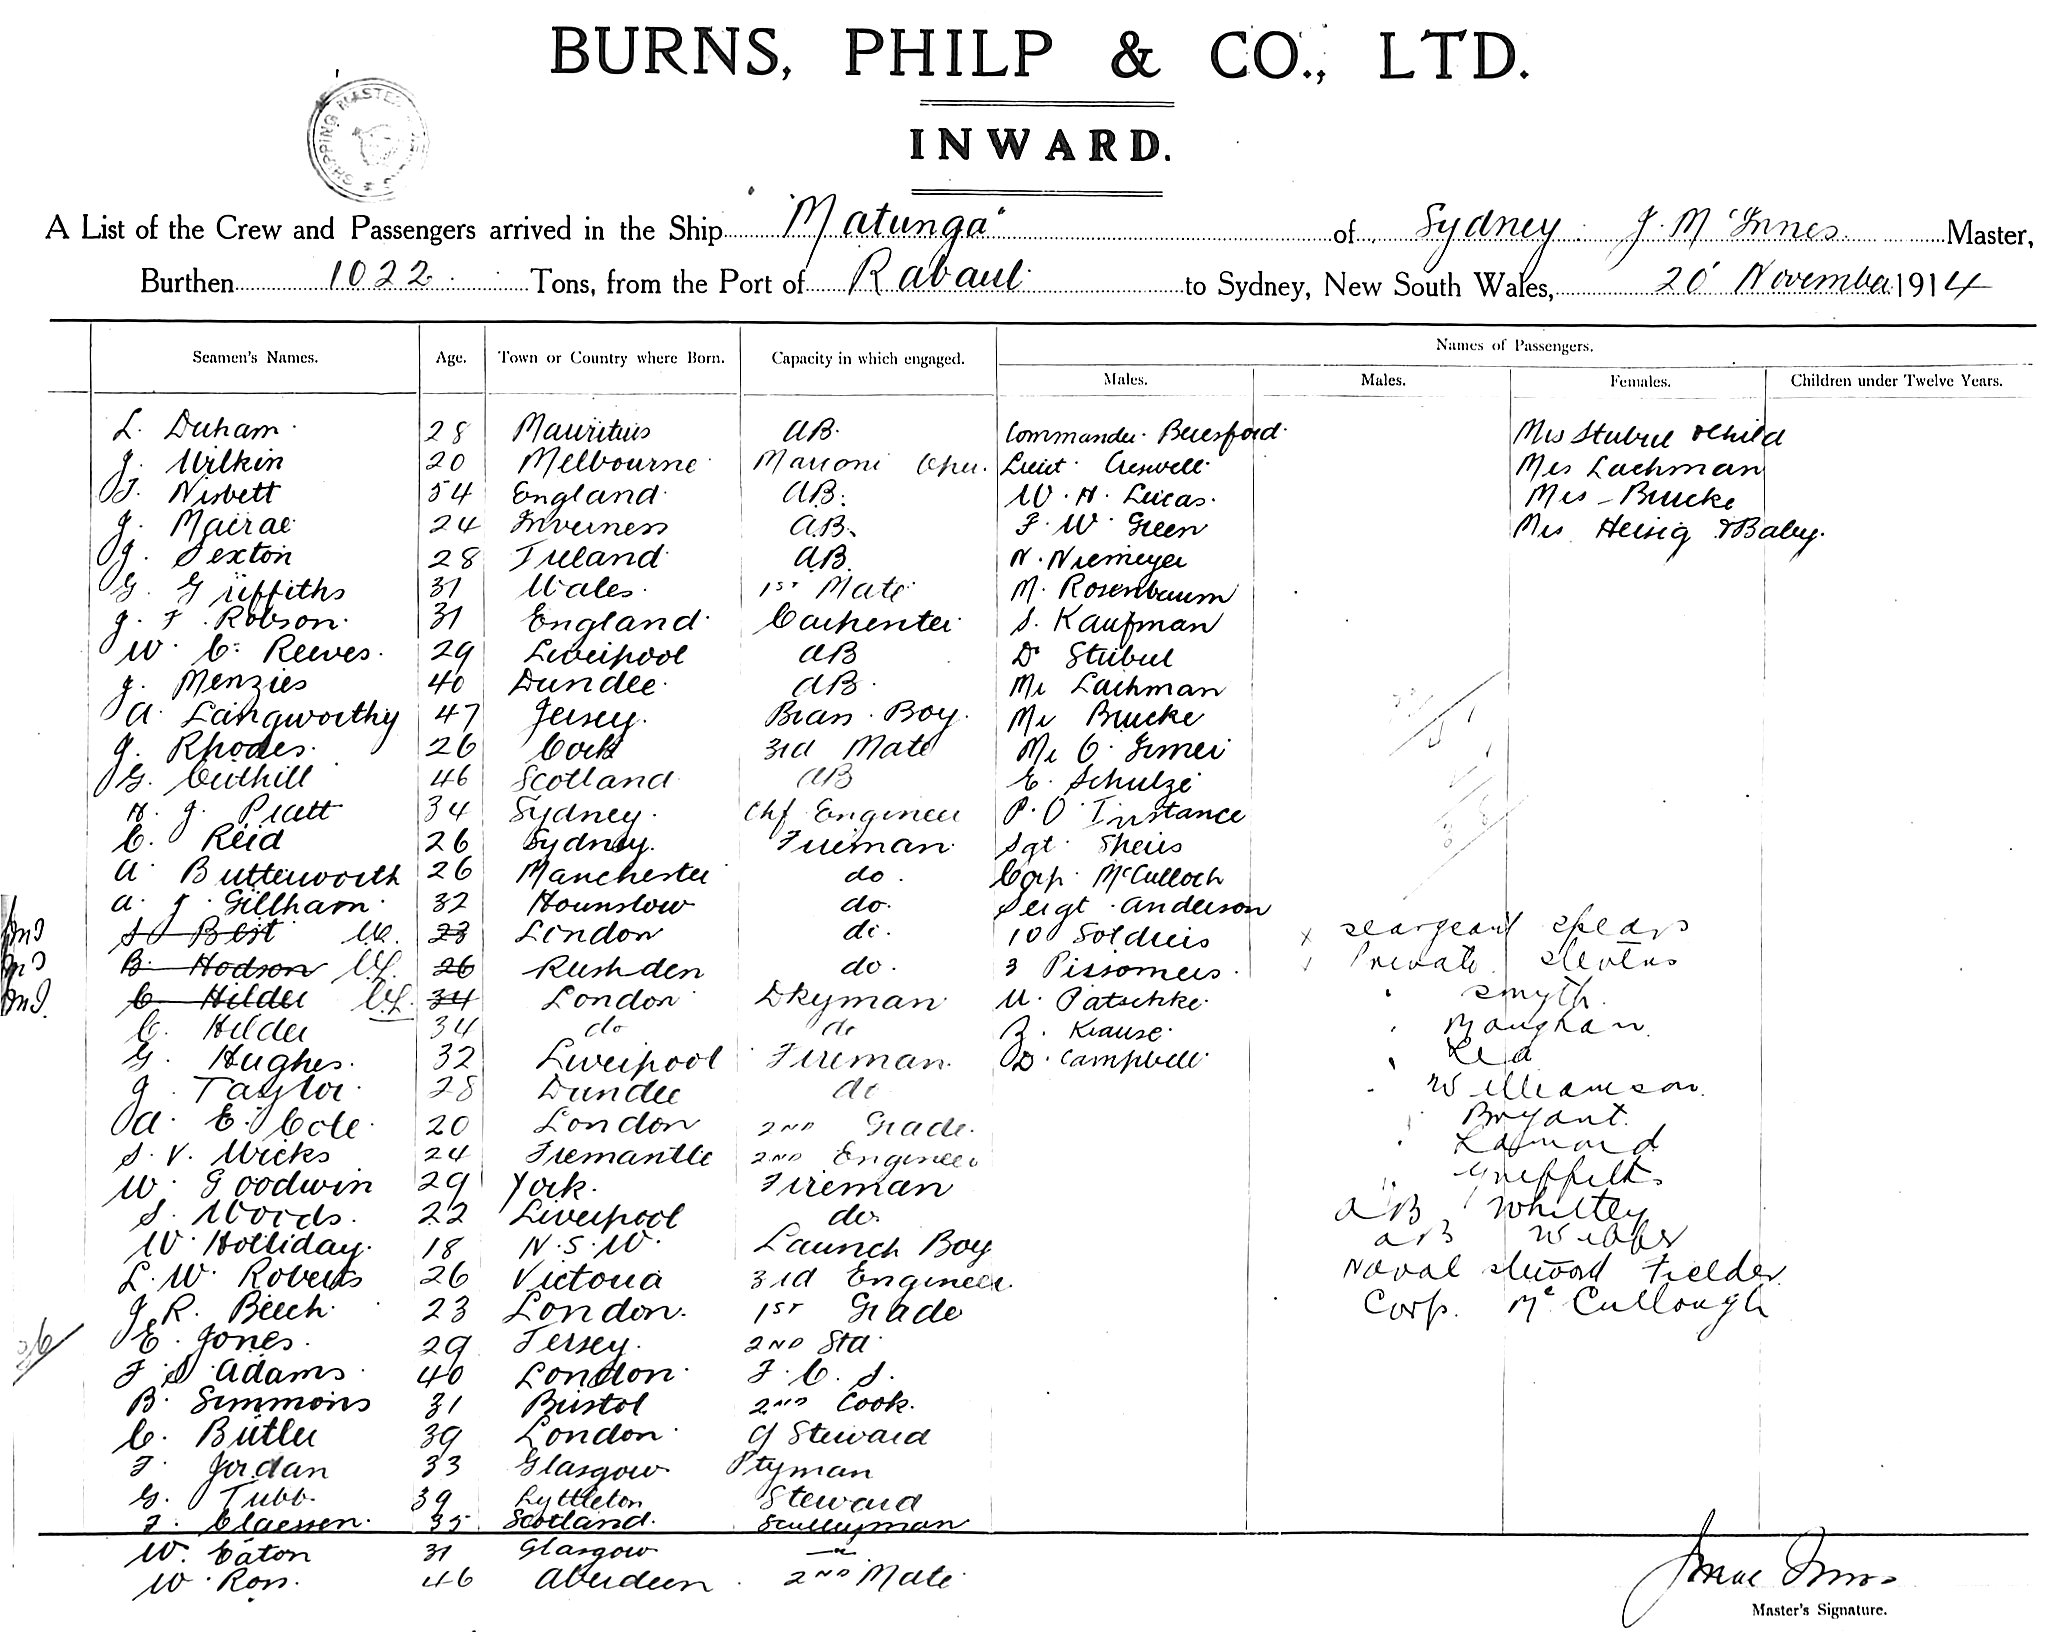 BURNS, PHILP & CO., LTD.
INWARD.
SHIPPING MASTER
A List of the Crew and Passengers arrived in the Ship "Matunga" of Sydney J. McInnes Master,
Burthen 1022 Tons, from the Port of Rabaul to Sydney, New South Wales, 20 November 1914
Names of Passengers.
Seamen's Names. Age. Town or Country where Born. Capacity in which engaged. Males. Males. Females. Children under Twelve Years.
L. Duham 28 Mauritius AB. Commander Beresford Mrs Stubul & Child
J. Wilkin 20 Melbourne Marconi Oper. Lieut Creswell Mrs Lachman
J. Nisbett 54 England AB. W. H. Lucas. Mrs Brucke
J. Macrae 24 Inverness A.B. F. W. Green Mrs Heisig & Baby.
J. Sexton 28 Ireland AB. N. Niemeyer
G. Griffiths 31 Wales. 1st Mate M. Rosenbaum
J. F. Robson. 31 England Carpenter S. Kaufman
W. C. Reeves. 29 Liverpool AB Dr Stubul
J. Menzies 40 Dundee AB. Mr Lachman
A. Langworthy 47 Jersey. Bras. Boy. Mr Brucke
J. Rhodes. 26 Cork 3rd Mate Mr O.
G. Cuthill 46 Scotland AB E. Schulze
H. J. Pratt 34 Sydney. Chf Engineer P. O. Instance
C. Reid 26 Sydney. Fireman Sgt. Speirs
A. Butterworth 26 Manchester do. Corp. McCulloch
A. J. Gillham. 32 Hounslow do. Sergt. Anderson
S Best 23 London do. 10 Soldiers x Seargeant Spears
B. Hodson 26 Rushden do. 3 Prisoners. Private Stevens
C. Hilder 34 London Dkyman U. Patschke. " Smyth.
C. Hilder 34 do do Z. Krause. " Maughan.
G. Hughes. 32 Liverpool Fireman. D. Campbell " Lea
J. Taylor. 28 Dundee do " Williamson.
A. E. Cole. 20 London 2nd Grade. " Bryant.
S. V. Wicks 24 Fremantle 2nd Engineer "
W. Goodwin 29 York. Fireman " Griffiths
S. Woods. 22 Liverpool do. AB Whitley
W. Holliday. 18 N.S.W. Launch Boy AB Webber
L. W. Roberts 26 Victoria 3rd Engineer. Naval Steward Fielder
J. R. Beech. 23 London. 1st Grade Corp. McCullough
E. Jones. 29 Jersey. 2nd Std
F. S. Adams. 40 London. F. C. S.
B. Simmons 31 Bristol 2nd Cook.
C. Butler 39 London. Steward
F. Jordan 33 Glasgow Ptyman
G. Tubb. 39 Lyttleton Steward
J. Claessen. 35 Scotland. Scullyman
W. Eaton 31 Glasgow
W. Ross. 46 Aberdeen 2nd Mate
Master's Signature.